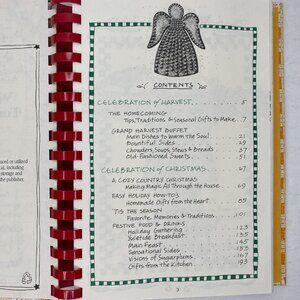 ored or utilized
al, including
storage and
the publisher.
CONTENTS
CELEBRATION of HARVEST. . . . . . . . 5
THE HOMECOMING
Tips, Traditions & Seasonal Gifts to Make . . 7
GRAND HARVEST BUFFET
Main Dishes to Warm the Soul . . . 21
Bountiful Sides . . . 29
Chowders, Soups, Stews & Breads . . . 37
Old-Fashioned Sweets . . . 51
CELEBRATION of CHRISTMAS . . . . . . . 67
A COZY COUNTRY CHRISTMAS
Making Magic All Through the House . . . 69
EASY HOLIDAY HOW-TO'S
Homemade Gifts from the Heart . . . 85
'TIS THE SEASON
Favorite Memories & Traditions . . . 101
FESTIVE FOOD & DRINKS
Holiday Gathering . . . 123
Yuletide Breakfast . . . 135
Main Feast . . . 145
Sensational Sides . . . 153
Visions of Sugarplums . . . 167
Gifts from the Kitchen . . . 193